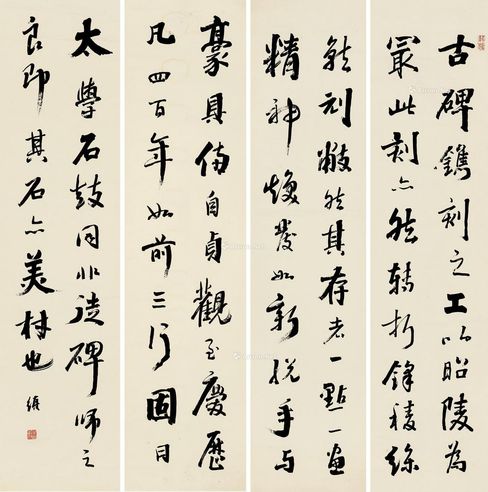 古碑鐫刻之工以昭陵為
最此刻亦然轉折鋒稜絲
氂具俻自貞觀至慶歷
凡四百年如前三行固日
就刓敝然其存者一點一畫
精神煥發如新脫手与
太學石鼓同非徒碑師之
良即其石亦美材也